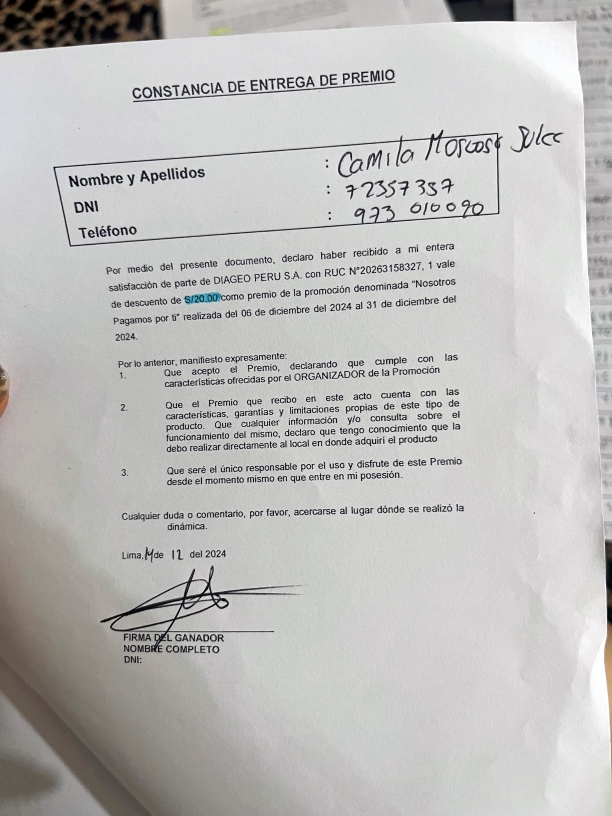 CONSTANCIA DE ENTREGA DE PREMIO
Nombre y Apellidos : Camila Moscoso
DNI : 72357357
Teléfono : 973 010090
Por medio del presente documento, declaro haber recibido a mi entera
satisfacción de parte de DIAGEO PERU S.A. con RUC N°20263158327, 1 vale
de descuento de S/20.00 como premio de la promoción denominada "Nosotros
Pagamos por ti" realizada del 06 de diciembre del 2024 al 31 de diciembre del
2024.
Por lo anterior, manifiesto expresamente:
1. Que acepto el Premio, declarando que cumple con las
características ofrecidas por el ORGANIZADOR de la Promoción
2. Que el Premio que recibo en este acto cuenta con las
características, garantías y limitaciones propias de este tipo de
producto. Que cualquier información y/o consulta sobre el
funcionamiento del mismo, declaro que tengo conocimiento que la
debo realizar directamente al local en donde adquirí el producto
3. Que seré el único responsable por el uso y disfrute de este Premio
desde el momento mismo en que entre en mi posesión.
Cualquier duda o comentario, por favor, acercarse al lugar dónde se realizó la
dinámica.
Lima, de 12 del 2024
FIRMA DEL GANADOR
NOMBRE COMPLETO
DNI: